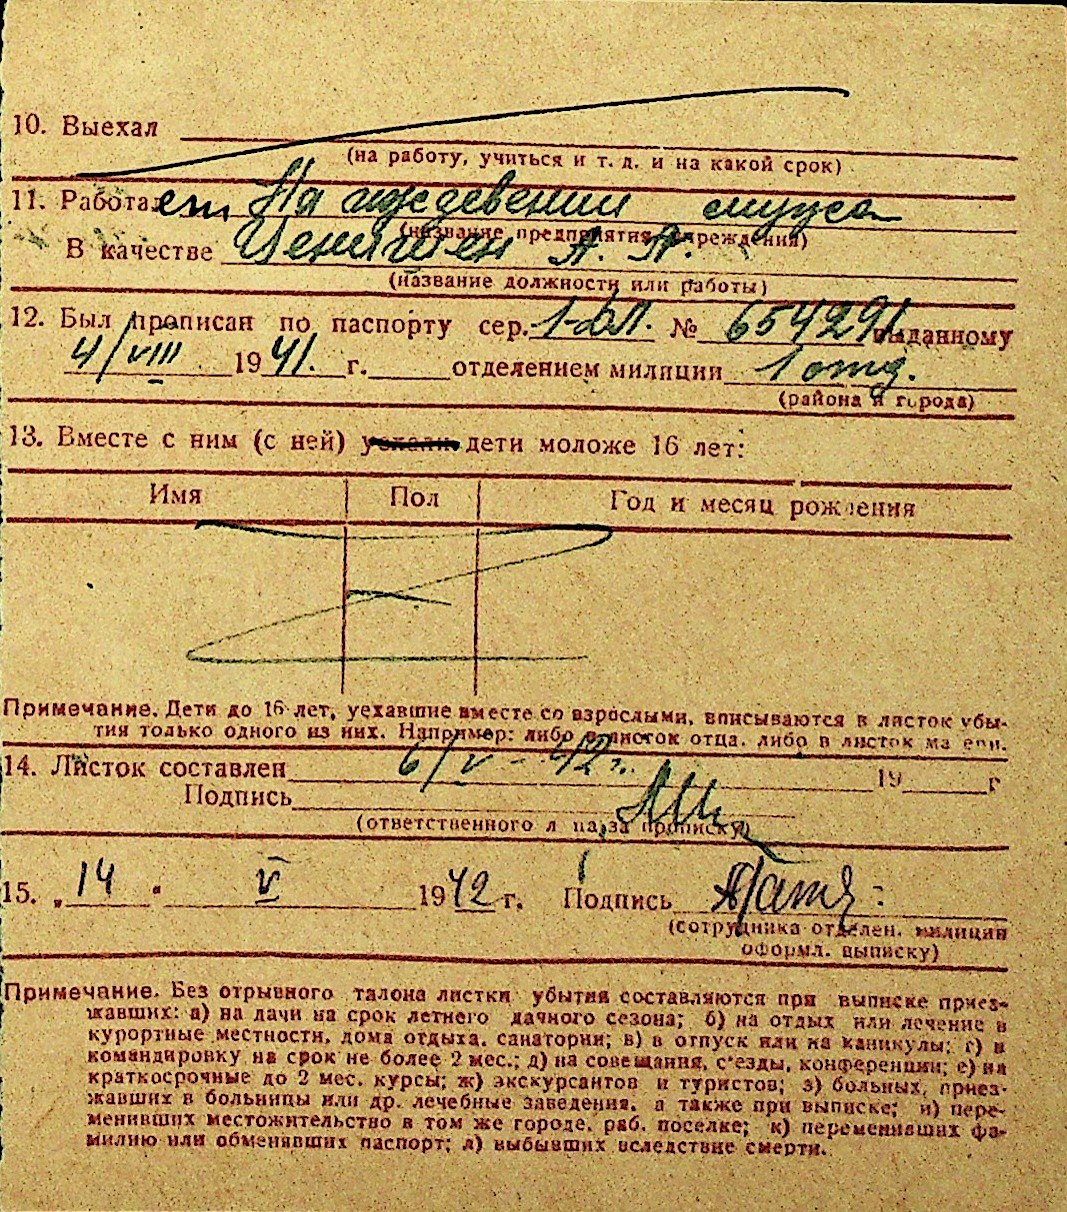 10. Выехал
(на работу, учиться и т. д. и на какой срок)
11. Работает На иждевении мужа
(название предприятия учреждения)
В качестве А. А.
(название должности или работы)
12. Был прописан по паспорту сер. 1-БЛ. № 654291 выданному
4/VIII 1941. г. отделением милиции 1 отд.
(района и города)
13. Вместе с ним (с ней) уехали дети моложе 16 лет:
Имя Пол Год и месяц рождения
Примечание. Дети до 16 лет, уехавшие вместе со взрослыми, вписываются в листок убы-
тия только одного из них. Например: либо в листок отца, либо в листок матери.
14. Листок составлен 6/V-42г. 19 г
Подпись
(ответственного лица за прописку)
15. „14 " V 1942 г. Подпись
(сотрудника отделен. милиции
оформл. выписку)
Примечание. Без отрывного талона листки убытия составляются при выписке приез-
жавших: а) на дачи на срок летнего дачного сезона; б) на отдых или лечение в
курортные местности, дома отдыха, санатории; в) в отпуск или на каникулы; г) в
командировку на срок не более 2 мес.; д) на совещания, с'езды, конференции; е) на
краткосрочные до 2 мес. курсы; ж) экскурсантов и туристов; з) больных, приез-
жавших в больницы или др. лечебные заведения, а также при выписке; и) пере-
менивших местожительство в том же городе, раб. поселке; к) переменивших фа-
милию или обменявших паспорт; л) выбывших вследствие смерти.